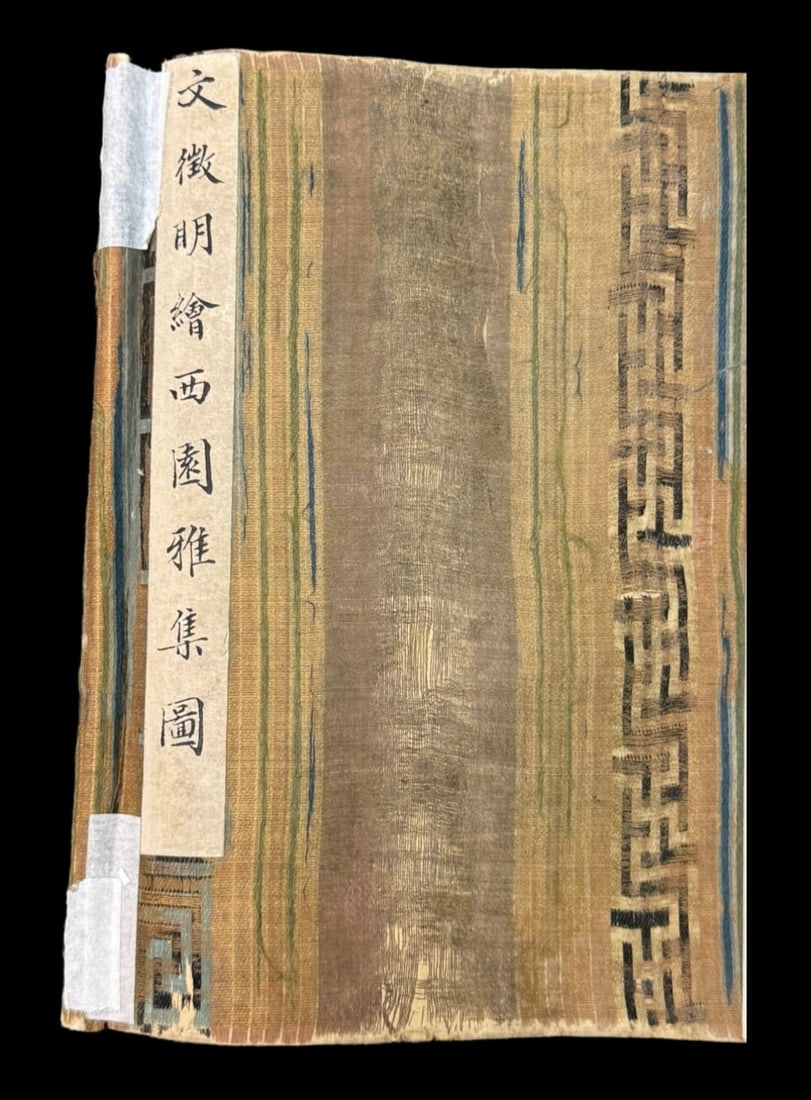 文徵明繪西園雅集圖